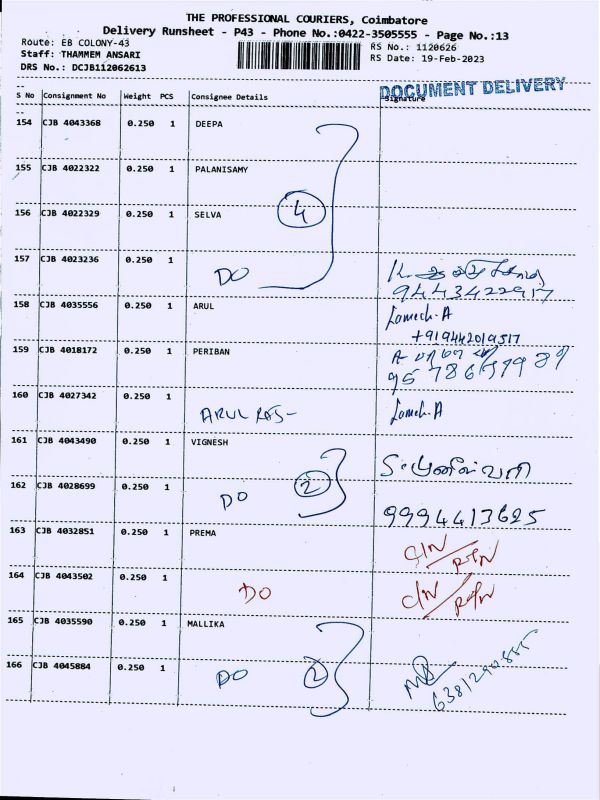 THE PROFESSIONAL COURIERS, Coimbatore
Delivery Runsheet - P43 - Phone No.:0422-3505555 - Page No.:13
Route: EB COLONY-43 RS No.: 1120626
Staff: THAMMEM ANSARI RS Date: 19-Feb-2023
DRS No.: DCJB112062613
DOCUMENT DELIVERY
S No Consignment No Weight PCS Consignee Details Signature
154 CJB 4043368 0.250 1 DEEPA
155 CJB 4022322 0.250 1 PALANISAMY
156 CJB 4022329 0.250 1 SELVA
4
157 CJB 4023236 0.250 1 DO
9443422917
158 CJB 4035556 0.250 1 ARUL Lamech.A
+919442019517
159 CJB 4018172 0.250 1 PERIBAN
160 CJB 4027342 0.250 1 ARUL RAJ- Lamech.A
161 CJB 4043490 0.250 1 VIGNESH
162 CJB 4028699 0.250 1 DO 2 9994413625
163 CJB 4032851 0.250 1 PREMA C/N RTN
164 CJB 4043502 0.250 1 DO C/N RTN
165 CJB 4035590 0.250 1 MALLIKA
166 CJB 4045884 0.250 1 DO 2